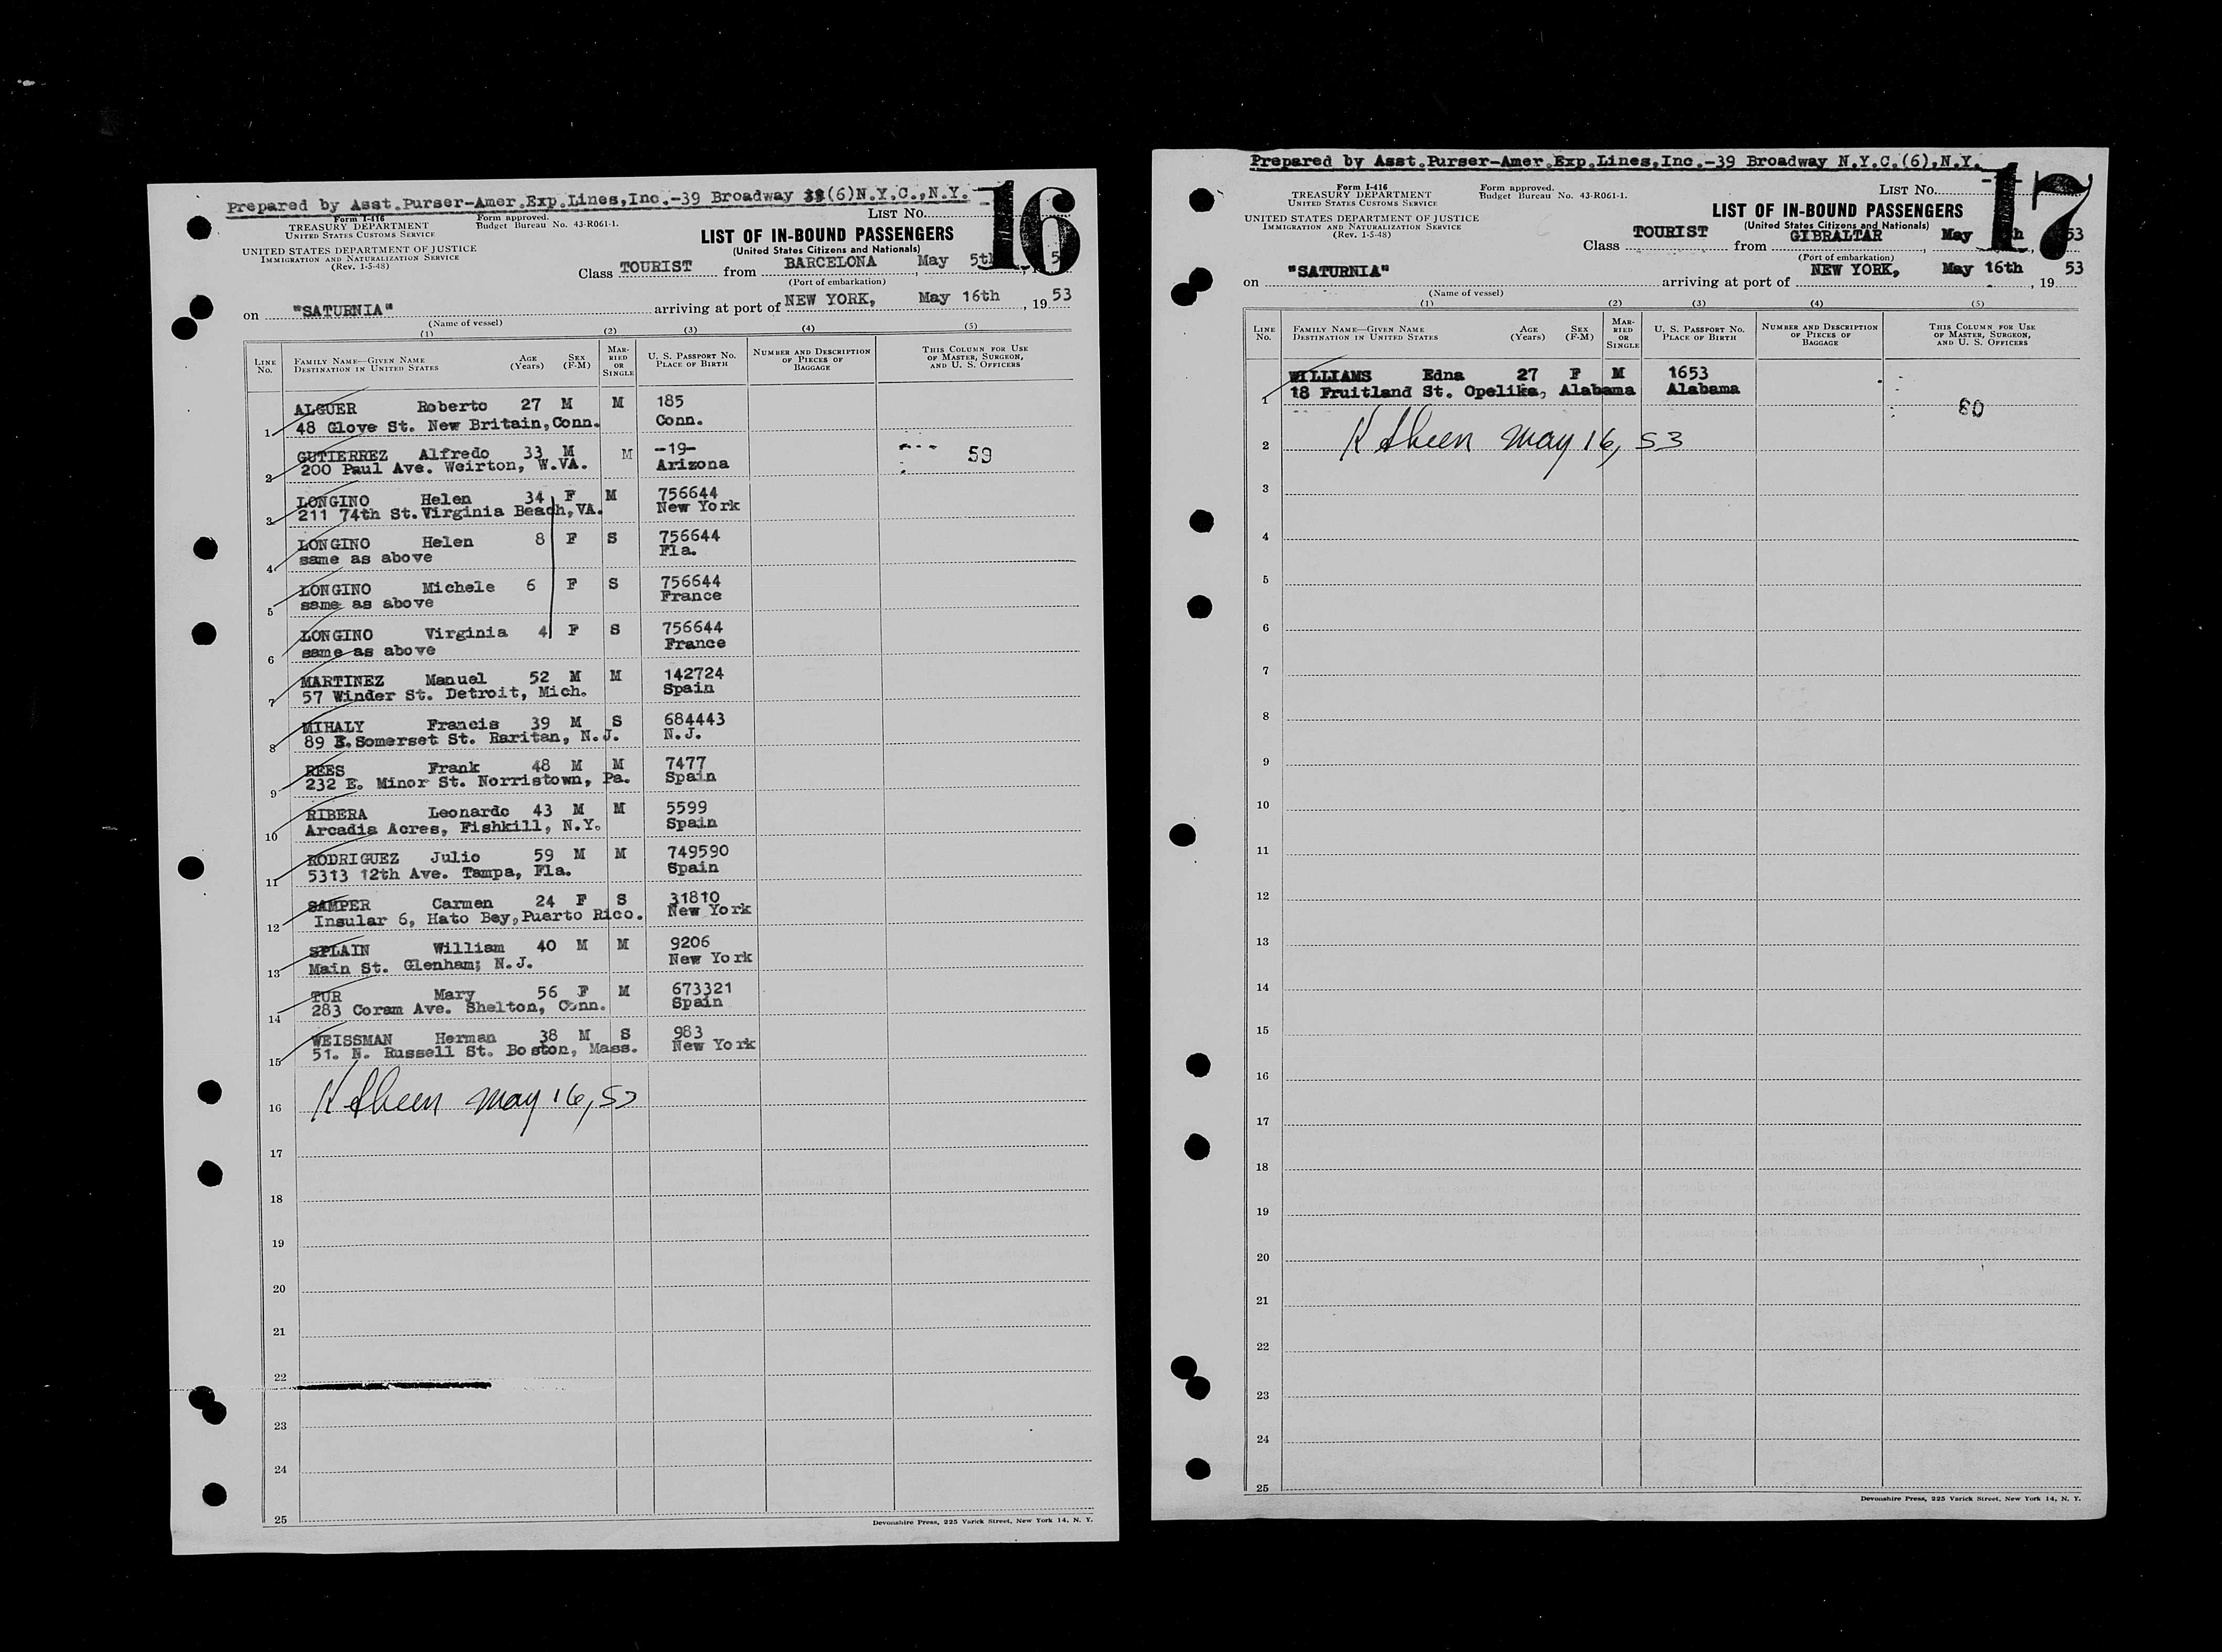 Prepared by Asst.Purser-Amer.Exp.Lines,Inc.-39 Broadway (6)N.Y.C.,N.Y.
16
Form I-416
TREASURY DEPARTMENT
UNITED STATES CUSTOMS SERVICE
Form approved.
Budget Bureau No. 43-R061-1.
LIST No.
UNITED STATES DEPARTMENT OF JUSTICE
IMMIGRATION AND NATURALIZATION SERVICE
(Rev. 1-5-48)
LIST OF IN-BOUND PASSENGERS
(United States Citizens and Nationals)
Class TOURIST from BARCELONA, May 5th
(Port of embarkation)
on "SATURNIA" arriving at port of NEW YORK, May 16th, 19 53
(Name of vessel)
(1) (2) (3) (4) (5)
LINE No. FAMILY NAME—GIVEN NAME DESTINATION IN UNITED STATES AGE (Years) SEX (F-M) MARRIED OR SINGLE U. S. PASSPORT No. PLACE OF BIRTH NUMBER AND DESCRIPTION OF PIECES OF BAGGAGE THIS COLUMN FOR USE OF MASTER, SURGEON, AND U. S. OFFICERS
ALGUER Roberto 27 M M 185
1 48 Glove St. New Britain,Conn. Conn.
GUTIERREZ Alfredo 33 M M -19- 59
2 200 Paul Ave. Weirton, W.VA. Arizona
LONGINO Helen 34 F M 756644
3 211 74th St.Virginia Beach,VA. New York
LONGINO Helen 8 F S 756644
4 same as above Fla.
LONGINO Michele 6 F S 756644
5 same as above France
LONGINO Virginia 4 F S 756644
6 same as above France
MARTINEZ Manuel 52 M M 142724
7 57 Winder St. Detroit, Mich. Spain
MIHALY Francis 39 M S 684443
8 89 E.Somerset St. Raritan, N.J. N.J.
REES Frank 48 M M 7477
9 232 E. Minor St. Norristown, Pa. Spain
RIBERA Leonardo 43 M M 5599
10 Arcadia Acres, Fishkill, N.Y. Spain
RODRIGUEZ Julio 59 M M 749590
11 5313 12th Ave. Tampa, Fla. Spain
SAMPER Carmen 24 F S 31810
12 Insular 6, Hato Bey,Puerto Rico. New York
SPLAIN William 40 M M 9206
13 Main St. Glenham; N.J. New York
TUR Mary 56 F M 673321
14 283 Coram Ave. Shelton, Conn. Spain
WEISSMAN Herman 38 M S 983
15 51. N. Russell St. Boston, Mass. New York
16 May 16, 53
17
18
19
20
21
22
23
24
25
Devonshire Press, 225 Varick Street, New York 14, N. Y.
Prepared by Asst.Purser-Amer.Exp.Lines,Inc.-39 Broadway N.Y.C.(6),N.Y.
17
Form I-416
TREASURY DEPARTMENT
UNITED STATES CUSTOMS SERVICE
Form approved.
Budget Bureau No. 43-R061-1.
LIST No.
UNITED STATES DEPARTMENT OF JUSTICE
IMMIGRATION AND NATURALIZATION SERVICE
(Rev. 1-5-48)
LIST OF IN-BOUND PASSENGERS
(United States Citizens and Nationals)
Class TOURIST from GIBRALTAR, May 53
(Port of embarkation)
on "SATURNIA" arriving at port of NEW YORK, May 16th, 19 53
(Name of vessel)
(1) (2) (3) (4) (5)
LINE No. FAMILY NAME—GIVEN NAME DESTINATION IN UNITED STATES AGE (Years) SEX (F-M) MARRIED OR SINGLE U. S. PASSPORT No. PLACE OF BIRTH NUMBER AND DESCRIPTION OF PIECES OF BAGGAGE THIS COLUMN FOR USE OF MASTER, SURGEON, AND U. S. OFFICERS
WILLIAMS Edna 27 F M 1653
1 18 Fruitland St. Opelika, Alabama Alabama 60
2 May 16, 53
3
4
5
6
7
8
9
10
11
12
13
14
15
16
17
18
19
20
21
22
23
24
25
Devonshire Press, 225 Varick Street, New York 14, N. Y.